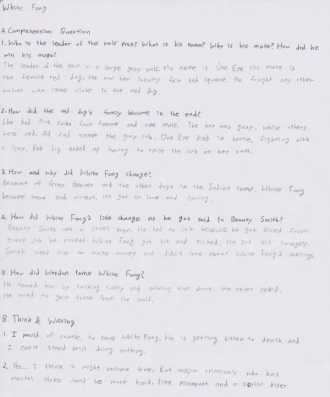 White Fang
A. Comprehension Question
1. Who is the leader of the wolf pack? What is his name? Who is his mate? How did he
win his mate?
The leader of the pack is a large gray wolf. His name is One Eye. His mate is
the female red dog. He won her loyalty fair and square. He fought any other
wolves who came close to the red dog.
2. How did the red dog's family become in the end?
She had five cubs four female and one male. The boy was gray, while others
were red. All died except the gray cub. One Eye died in battle, fighting with
a lynx. Red dog ended up having to raise the cub on her own.
3. How and why did White Fang change?
Because of Gray Beaver and the other dogs in the Indian camp, White Fang
become mean and violent. He got no love and caring.
4. How did White Fang's life changes as he got sold to Beauty Smith?
Beauty Smith was a cruel man. He had no job because he got fired from
every job he worked. White Fang got hit and kicked. He got bit savagely.
Smith used him to make money and didn't care about White Fang's feelings.
5. How did Weedon tame White Fang?
He tamed him by talking softly and calming him down. He never yelled.
He need to gain trust from the wolf.
B. Think & Writing
1. I would, of course, to save White Fang. He is getting bitten to death and
I can't stand still doing nothing.
2. Yes... I think it might become true. But major criminals who has
mental illness could be more hard. Like psychopath and a serial killer